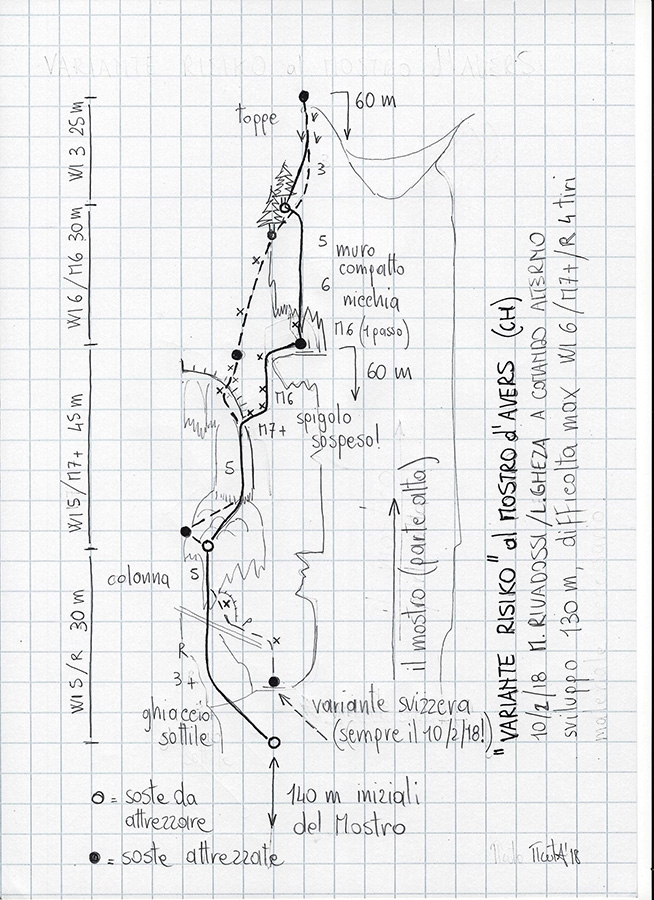 toppe
60 m
3
5
muro
compatto
6
nicchia
M6 (1 passo)
60 m
M6
M7+
spigolo
sospeso!
5
colonna
5
R
3+
ghiaccio
sottile
il mostro (parte alta)
variante svizzera
(sempre il 10/2/18!)
140 m iniziali
del Mostro
WI 3 25 m
WI 6/M6 30 m
WI 5/M7+ 45 m
WI 5/R 30 m
"VARIANTE RISIKO" al MOSTRO d'AVERS (CH)
10/2/18 M. RIVADOSSI/L. GHEZA A COMANDO ALTERNO
sviluppo 130 m, difficoltà max WI 6/M7+/R 4 tiri
O = soste da
attrezzare
● = soste attrezzate
'18